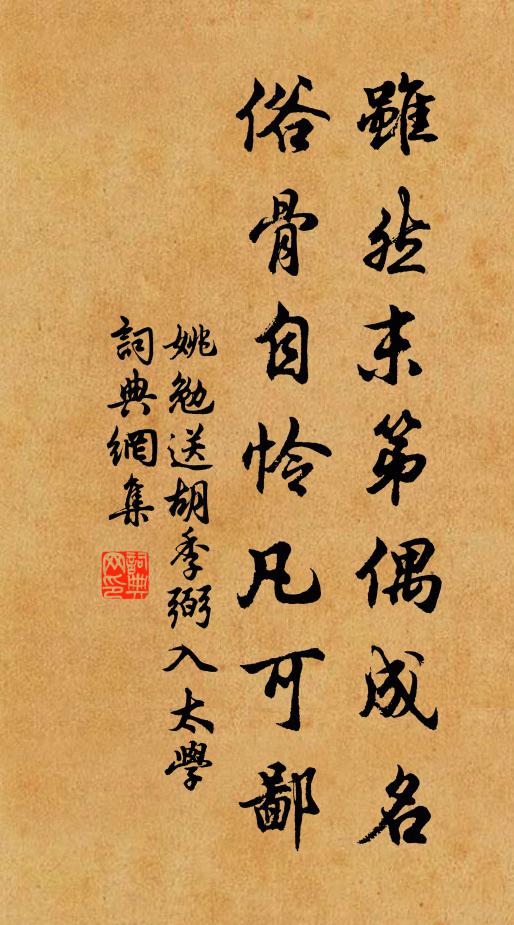 雖然末第偶成名
俗骨自怜凡可鄙
姚勉送胡季弼入太學
詞典網集
詞典网印